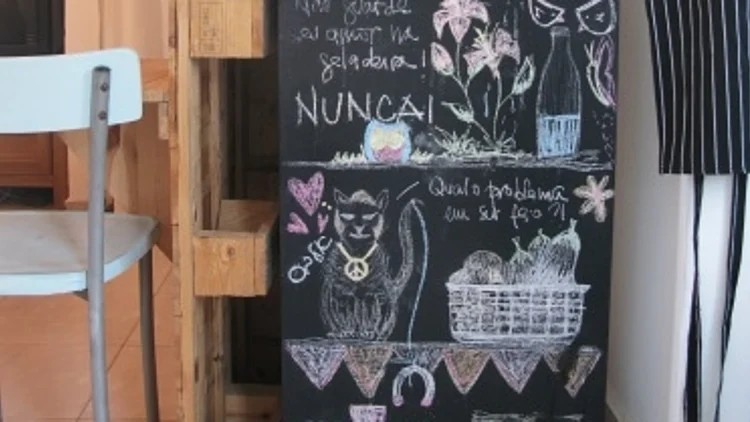 Não guarde
seu amor na
geladeira!
NUNCA!
Qual o problema
em ser feio?!